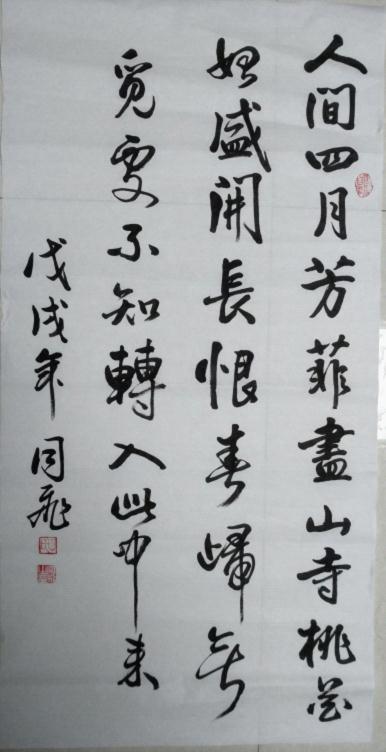 人間四月芳菲盡山寺桃花
始盛開長恨春歸無
覓處不知轉入此中來
戊戌年 同飛